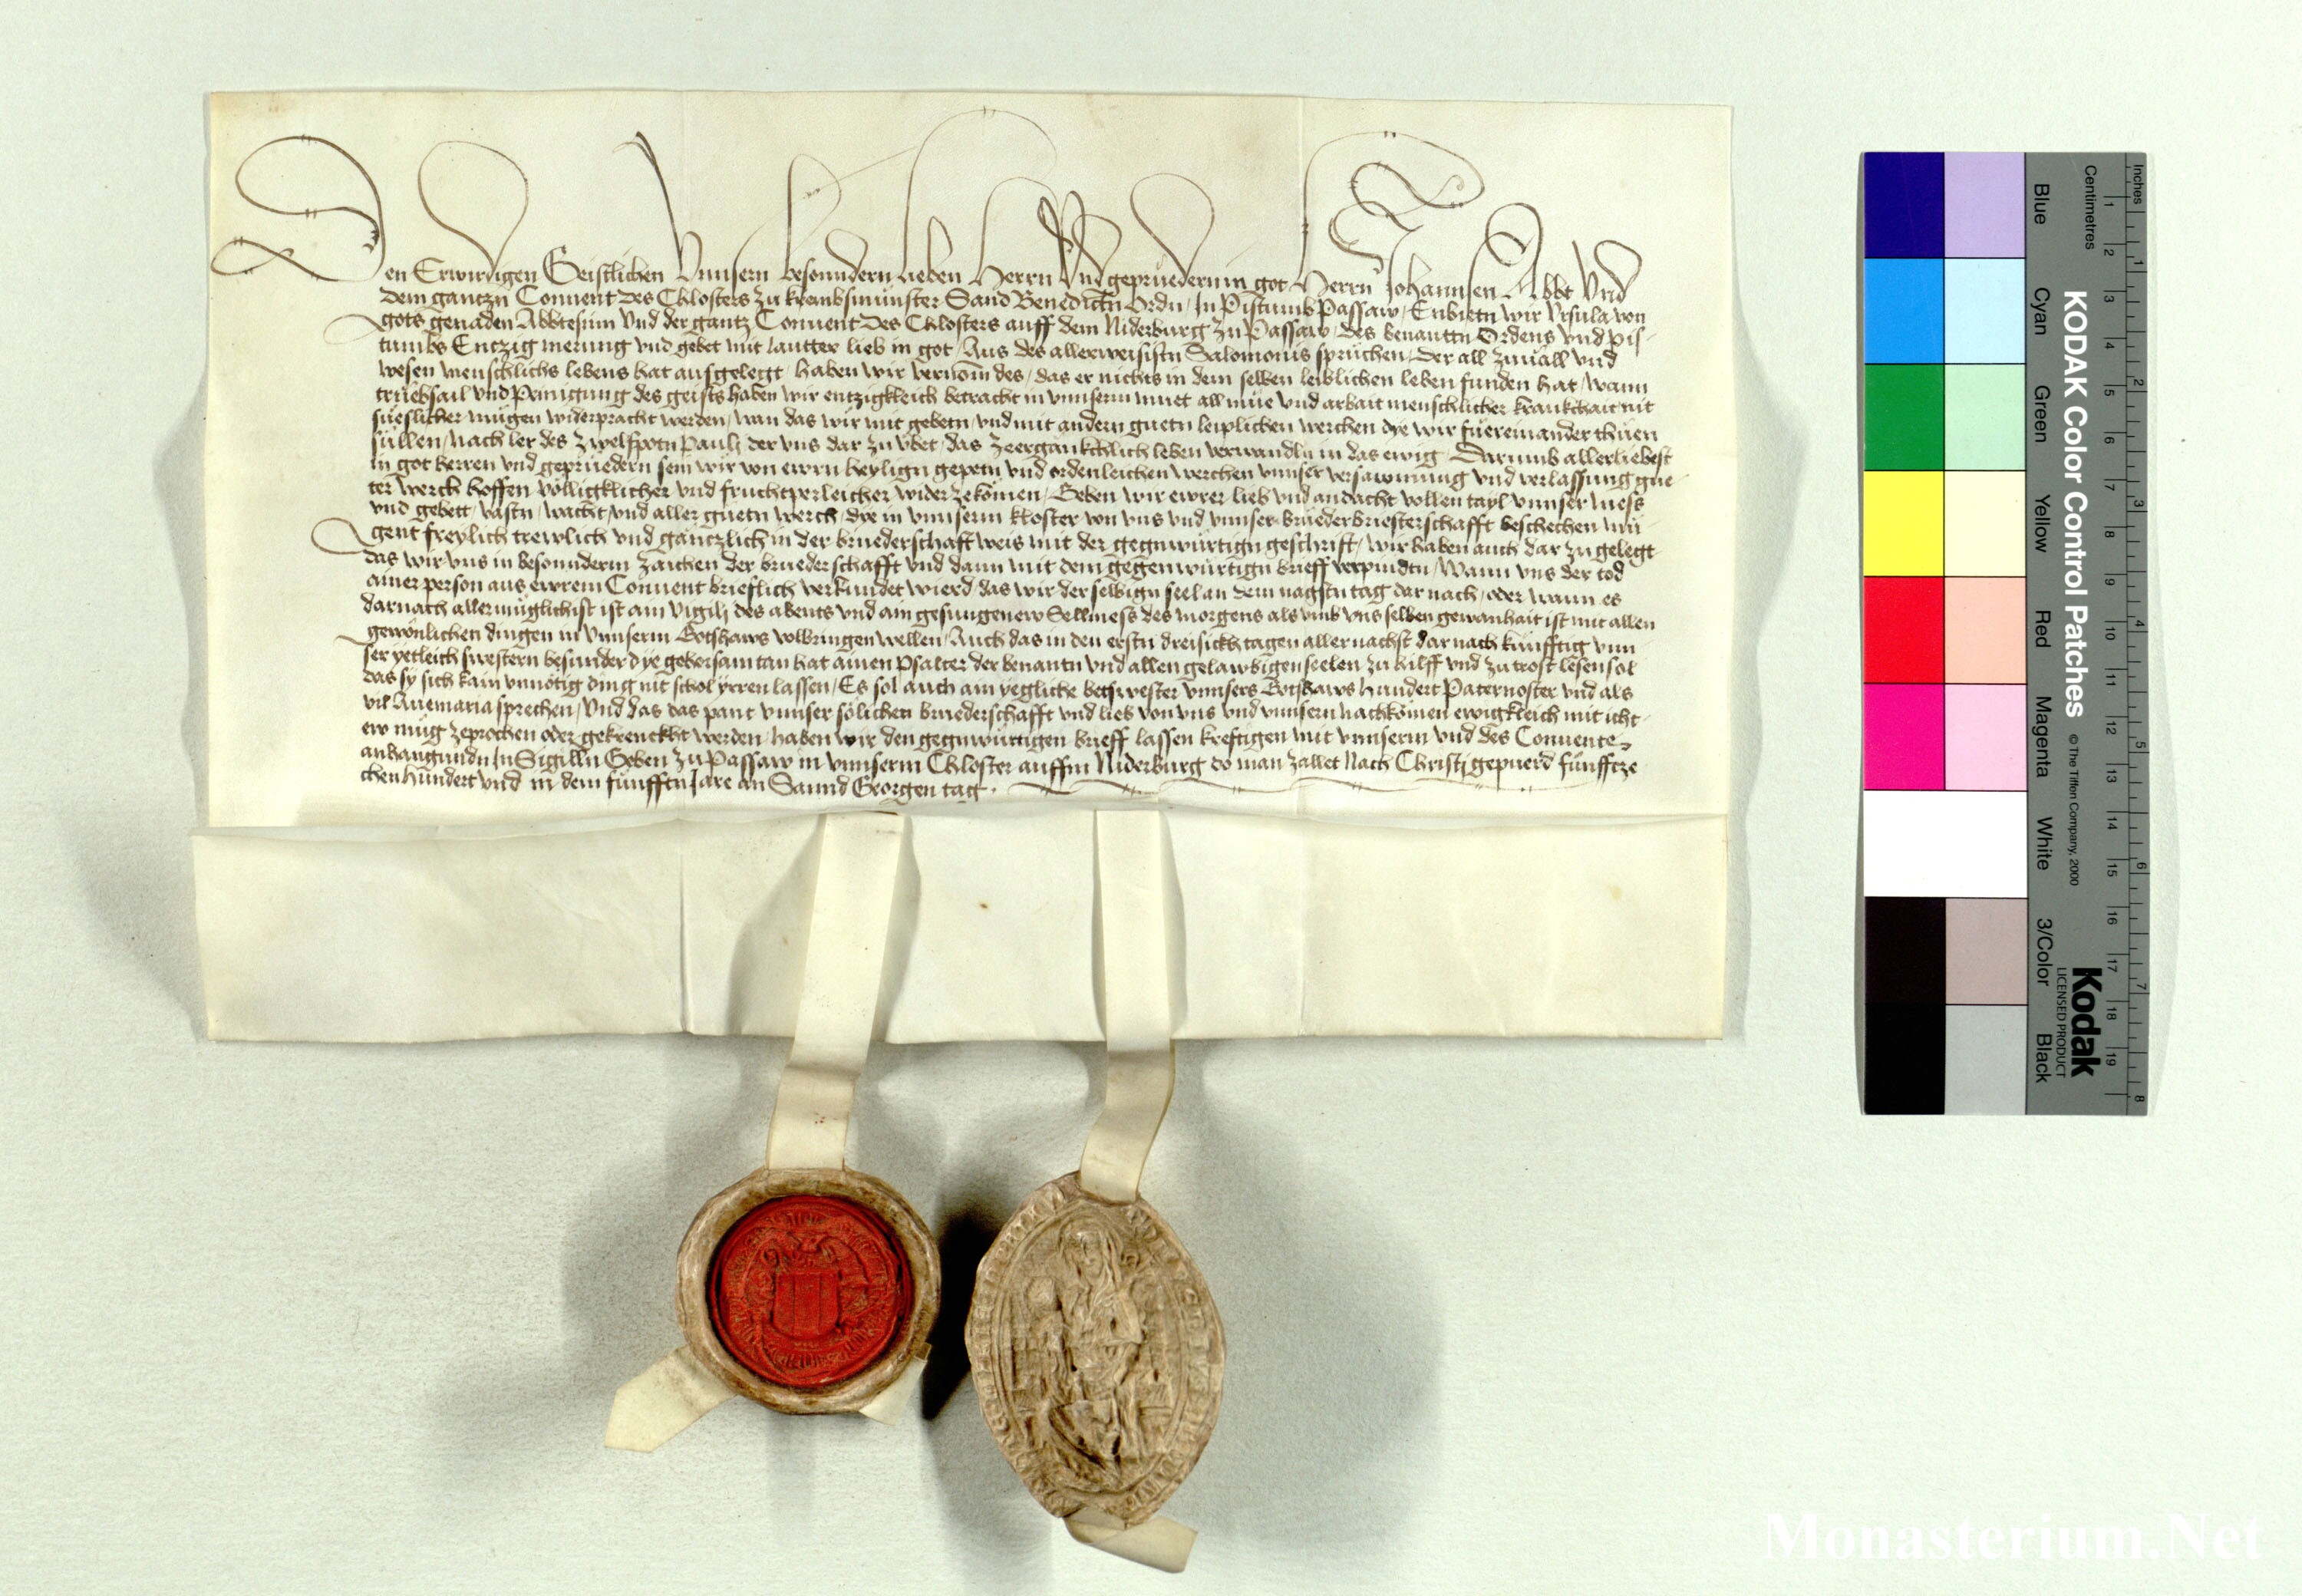 Den Erwirdigen Geistlichen Vnnsern besonndern lieben Herrn Vnd gepruedern in got Herrn Johannsen Abbt Vnd
dem gantzn Conuent des Closters zu krembsmunster Sand Benedictn Ordn / In Pistumb Passaw / Enbietn wir Vrsula von
gots genaden Abbtesinn Vnd der gantz Conuent des Closters auff dem Niderburg zu Passaw / des benanttn Ordens vnd pis-
tumbs Entzig merung vnd gebet mit lautter lieb in got / Aus des allerweisistn Salomonis spruchen / der all zuuall vnd
wesen menschlichs lebens hat ausgelegt / haben wir vernom des / das er nichts in dem selben leiblichen leben funden hat / wann
truebsail vnd Peinigung des geists haben wir entzigkleich betracht in vnnserm muet all mue vnd arbait menschlicher krankchait nit
sueslicher mugen widerpracht werden / wan das wir mit gebetn vnd mit andern guetn leiplichen werchen dye wir fuereinander thuen
sullen / nach ler des zwelfpotn Pauli der vns dar zu vbet das zeergankchlich leben verwandln in das ewig Darumb allerliebest
in got herren vnd gepruedern sein wir von ewrn heylign gepetn vnd ordenleichen werchen vnnser versamnung vnd verlassung gue-
ter werch hoffen volligklicher vnd fruchtperleicher wider zekomen / Geben wir ewrer lieb vnd andacht vollen tayl vnnser mess
vnd gebett / vastn / wacht / vnd aller guetn werch / dye in vnnserm kloster von vns vnd vnnser brueder briesterschafft beschechen mu-
gent freylich trewlich vnd gantzlich in der bruederschaft weis mit der gegnwurtign geschrift / wir haben auch dar zu gelegt
das wir vns in besonnderm zaichen der bruederschafft vnd dann mit dem gegenwurtign brieff verpindtn / Wann vns der tod
ainer person aus ewrem Conuent brieflich verkundet wierd / das wir der selbign seel an dem nagstn tag dar nach / oder wann es
darnach aller muglichist ist ain Vigili des abents vnd ain gesungenew Sellmess des morgens als vmb vns selben gewonhait ist mit allen
gewonlichen dingen in vnnserm Gotshaws volbringen wellen / Auch das in den erstn dreisickh tagen aller nachst dar nach kunfftig vnn-
ser yetleich swestern besunder dye gehorsam tan hat ainen Psalter der benantn vnd allen gelawbigen seelen zu hilff vnd zu trost lesen sol
das sy sich kain vnnotig ding nit schol yrren lassen / Es sol auch ain yegliche betswester vnnsers Gotshaws hundert Paternoster vnd als
vil Auemaria sprechen / Vnd das das pant vnnser solichen bruederschafft vnd lieb von vns vnd vnnsern nachkomen ewigkleich mit icht-
ew mug zeprochen oder gekrenckht werden / haben wir den gegnwurtigen brieff lassen kreftigen mit vnnserm vnd des Conuentes
anhangundn InSigilln Geben zu Passaw in vnnserm Closter auffm Niderburg do man zallet Nach Christi gepuerd funfftze
chenhundert vnd in dem funfftn Jare an Sannd Georgen tag
Inches
Centimetres
1 2 3 4 5 6 7 8
1 2 3 4 5 6 7 8 9 10 11 12 13 14 15 16 17 18 19
KODAK Color Control Patches © The Tiffen Company, 2000
Kodak
LICENSED PRODUCT
Blue
Cyan
Green
Yellow
Red
Magenta
White
3/Color
Black
Monasterium.Net